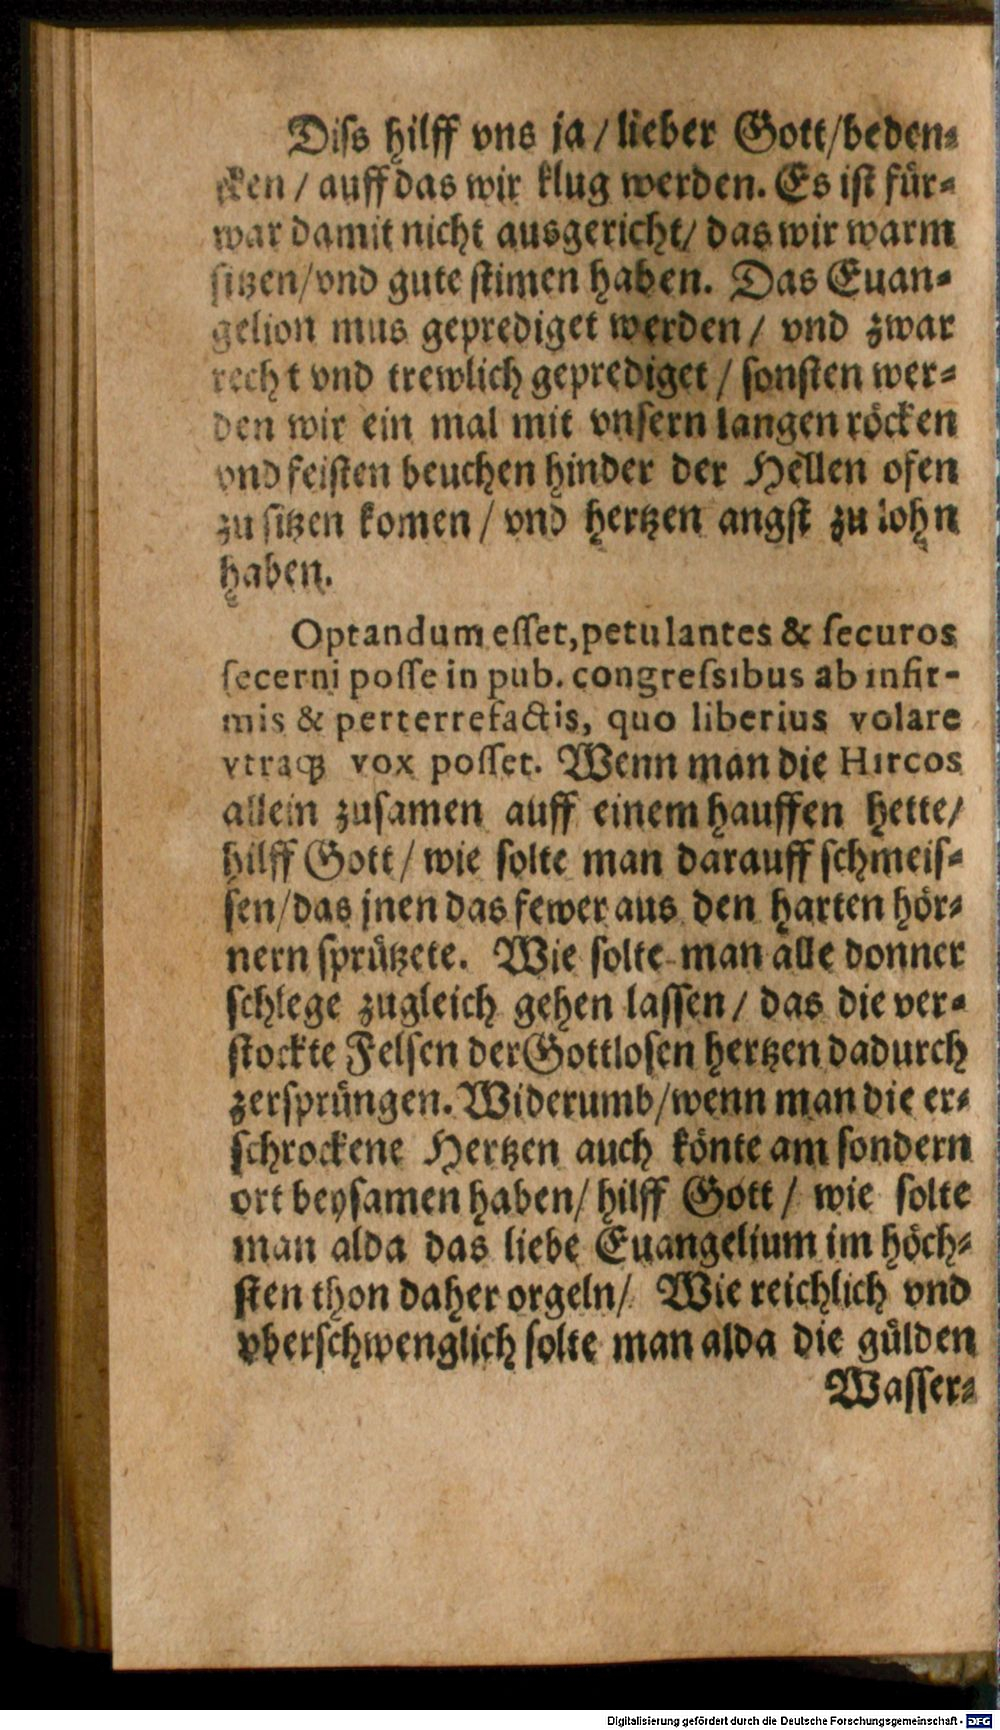 Diſs hilff vns ja / lieber Gott/beden⸗
cken / auff das wir klug werden. Es iſt für⸗
war damit nicht ausgericht/ das wir warm
ſitzen/vnd gute ſtimen haben. Das Euan⸗
gelion mus geprediget werden / vnd zwar
recht vnd trewlich geprediget / ſonſten wer⸗
den wir ein mal mit vnſern langen röcken
vnd feiſten beuchen hinder der Hellen ofen
zu ſitzen komen / vnd hertzen angſt zu lohn
haben.
Optandum eſſet, petulantes & ſecuros
ſecerni poſſe in pub. congreſsibus ab infir-
mis & perterrefactis, quo liberius volare
vtraqꝫ vox poſſet. Wenn man die Hircos
allein zuſamen auff einem hauffen hette/
hilff Gott / wie ſolte man darauff ſchmeiſ⸗
ſen/das jnen das fewer aus den harten hör⸗
nern ſprützete. Wie ſolte man alle donner
ſchlege zugleich gehen laſſen / das die ver⸗
ſtockte Felſen der Gottloſen hertzen dadurch
zerſprüngen. Widerumb/wenn man die er⸗
ſchrockene Hertzen auch könte am ſondern
ort beyſamen haben/ hilff Gott / wie ſolte
man alda das liebe Euangelium im höch⸗
ſten thon daher orgeln/ Wie reichlich vnd
vberſchwenglich ſolte man alda die gülden
Waſſer⸗
Digitalisierung gefördert durch die Deutsche Forschungsgemeinschaft - DFG